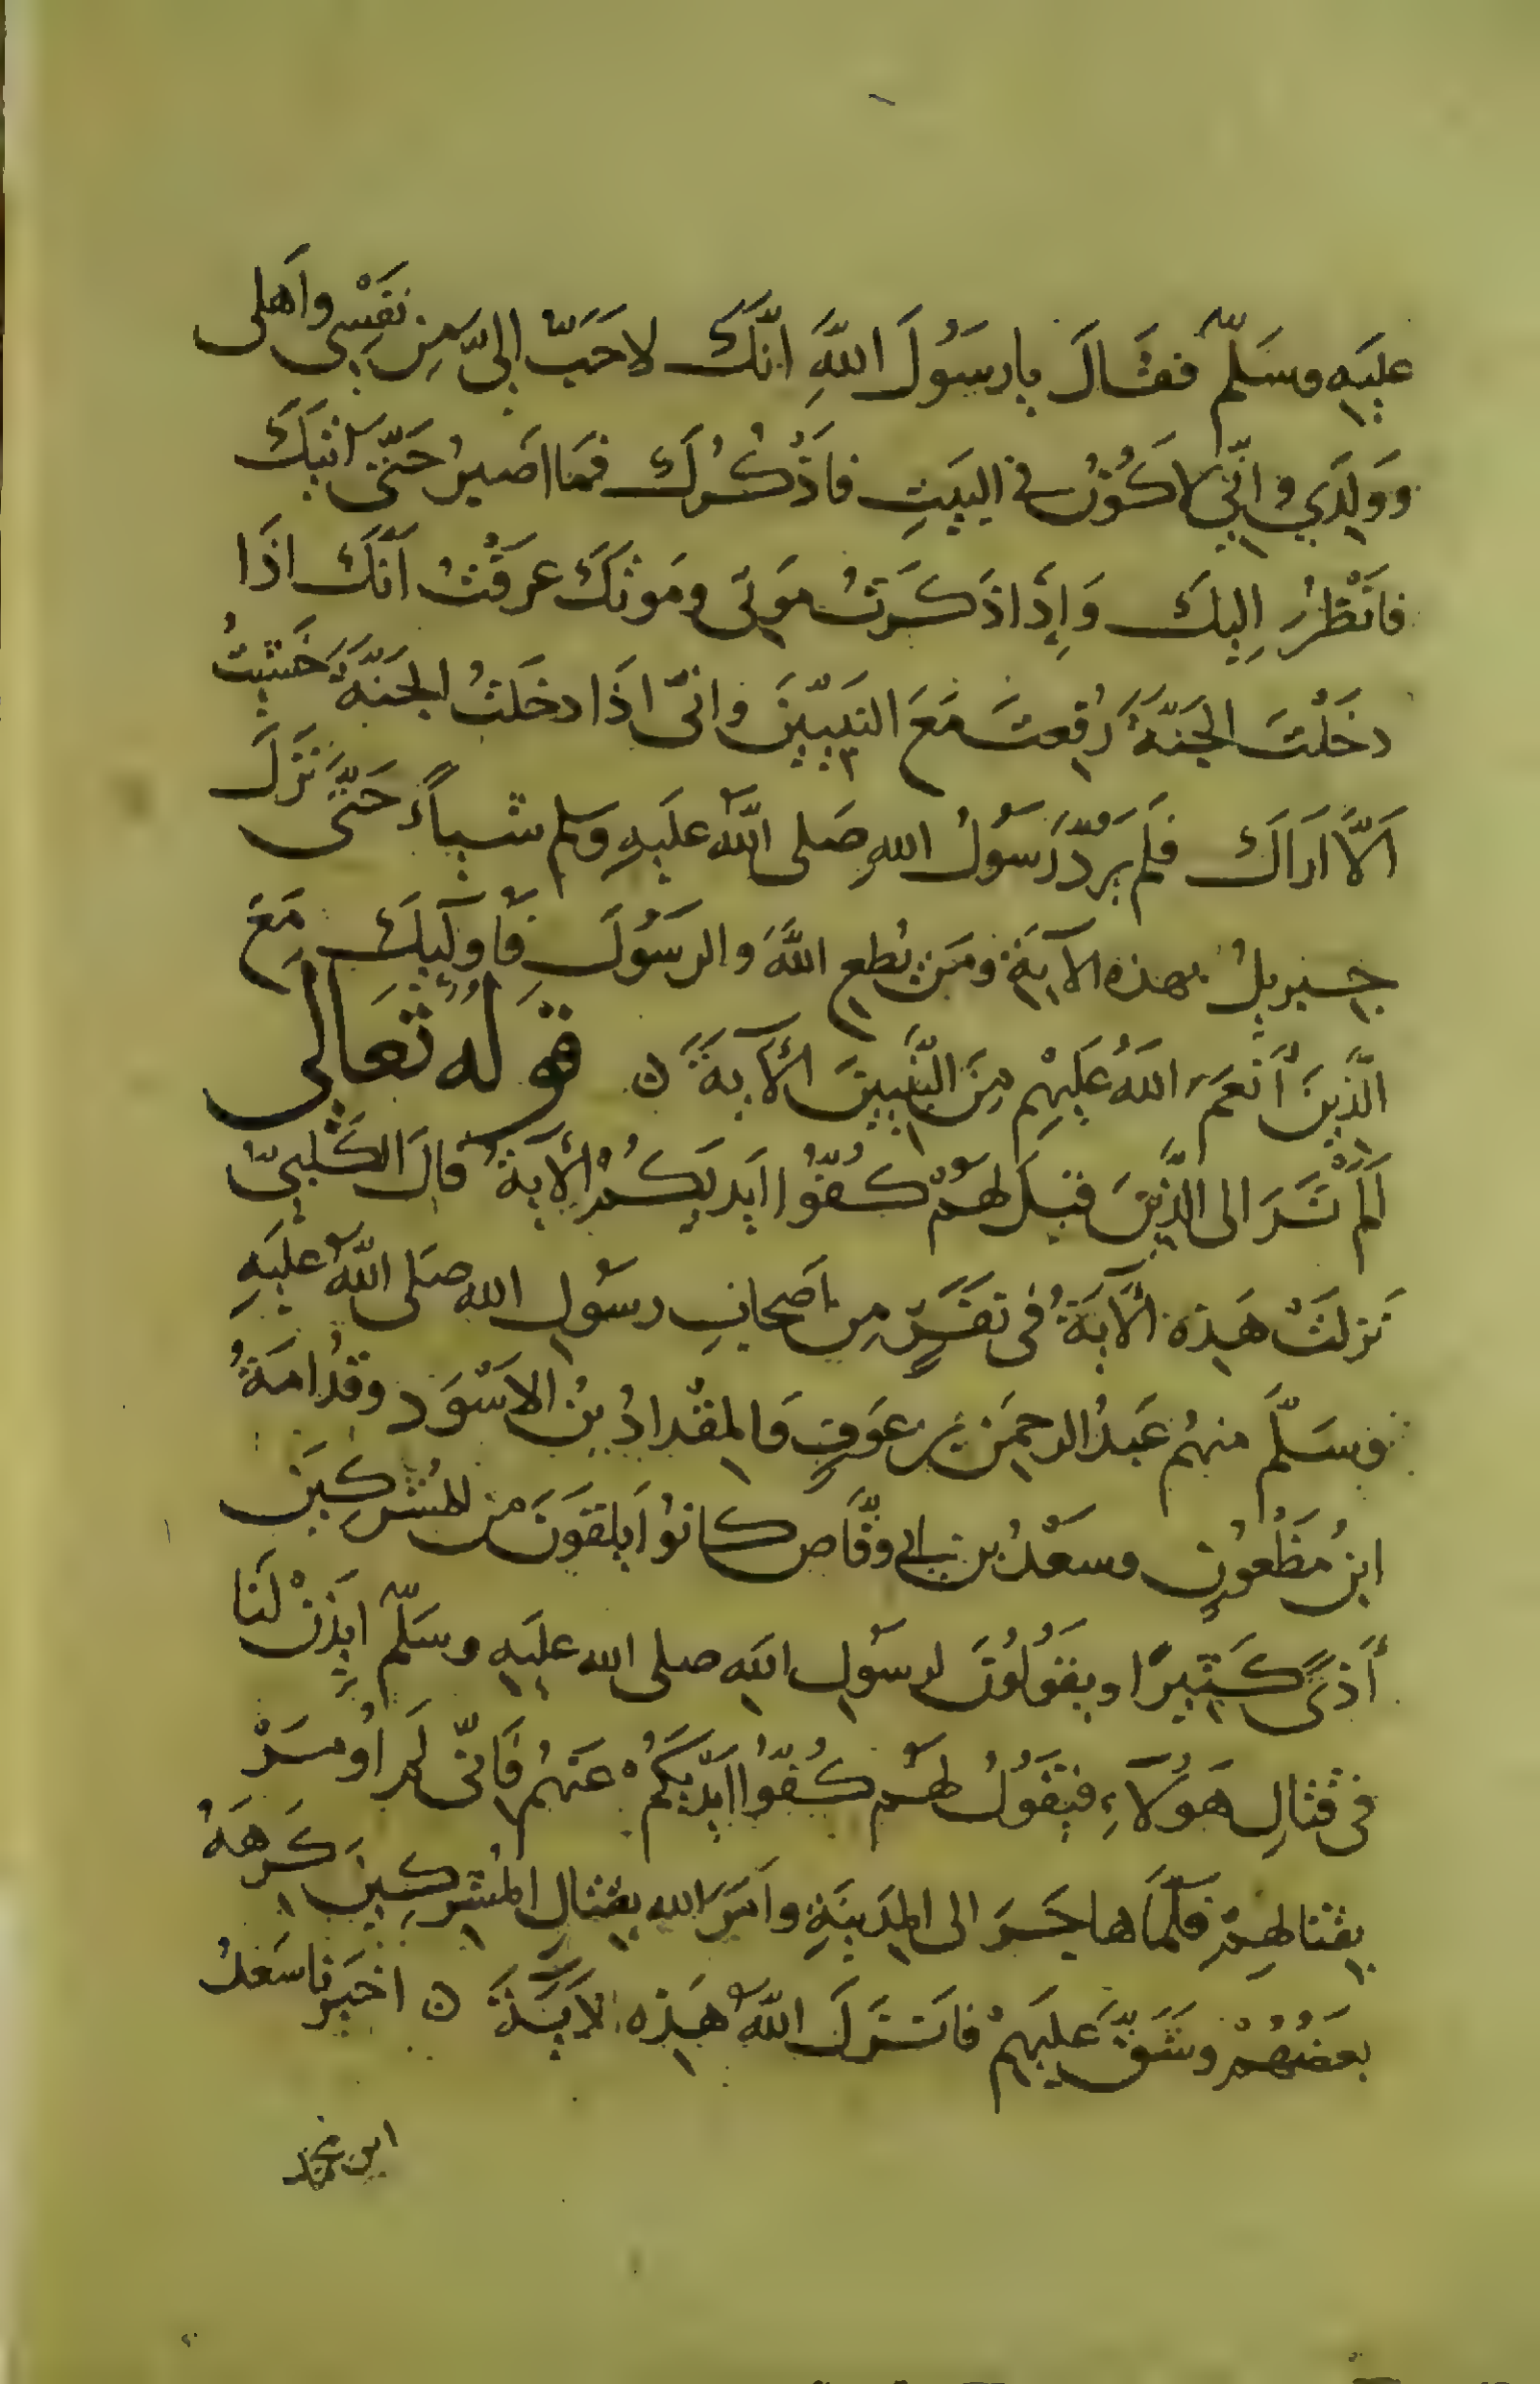 عليه وسلّم فقال يا رسول الله انّك لاحبّ اليّ من نفسي واهلى
وولدي وانّي لاكون في البيت فاذكرك فما اصبر حتّى اتيك
فانظر اليك وإذا ذكرت موتى وموتك عرفت انّك اذا
دخلت الجنّة رفعت مع النبيّين وانّى اذا دخلت الجنّة خشيت
الّا اراك فلم يردّ رسول الله صلى الله عليه وسلم شياً حتّى نزل
جبريل بهذه الآية ومن يطع الله والرسول فأوليك مع
الّذين أنعم الله عليهم من النّبيين الآية ن قوله تعالى
الم تر الى الّذين قيل لهم كفّوا ايديكم الآية قال الكلبيّ
نزلت هذه الآية فى نفر من اصحاب رسول الله صلى الله عليه
وسلّم منهم عبد الرحمن بن عوف والمقداد بن الاسود وقدامة
ابن مظعون وسعد بن ابي وقّاص كانوا يلقون من المشركين
أذىً كثيرًا ويقولون لرسول الله صلى الله عليه وسلّم ايذن لنا
فى قتال هولآء فيقول لهم كفّوا ايديكم عنهم فانّى لم اومر
بقتالهم فلمّا هاجر الى المدينة وامر الله بقتال المشركين كرهه
بعضهم وشقّ عليهم فانزل الله هذه الآية ن اخبرنا سعد
ابن محمد